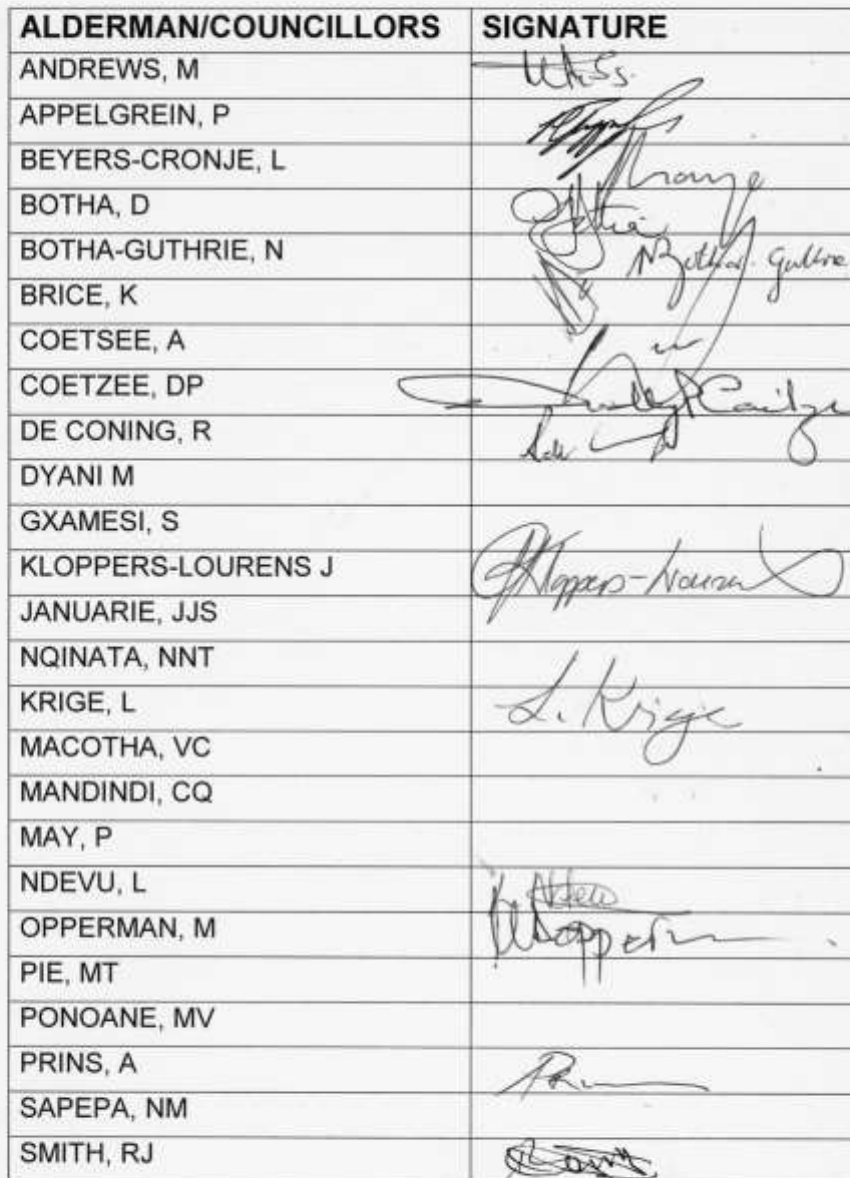 ALDERMAN/COUNCILLORS SIGNATURE
ANDREWS, M
APPELGREIN, P
BEYERS-CRONJE, L
BOTHA, D
BOTHA-GUTHRIE, N NBotha-Guthrie
BRICE, K
COETSEE, A
COETZEE, DP
DE CONING, R
DYANI M
GXAMESI, S
KLOPPERS-LOURENS J Kloppers-Louren
JANUARIE, JJS
NQINATA, NNT
KRIGE, L L. Krige
MACOTHA, VC
MANDINDI, CQ
MAY, P
NDEVU, L
OPPERMAN, M
PIE, MT
PONOANE, MV
PRINS, A
SAPEPA, NM
SMITH, RJ